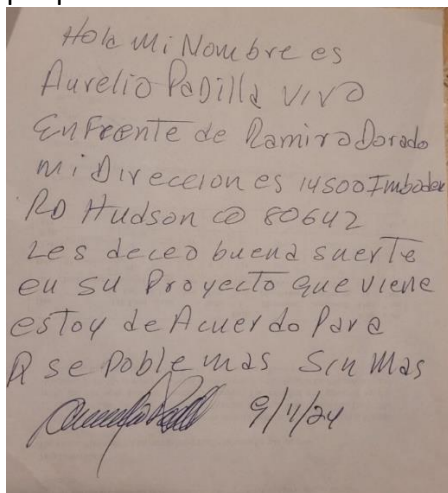 Hola Mi Nombre es
Aurelio Padilla vivo
en Frente de Ramiro Dorado
mi Direccion es 14500 Imboden
RD Hudson CO 80642
Les deceo buena suerte
en su Proyecto que viene
estoy de Acuerdo Para
Q se Poble mas Sin Mas
9/11/24